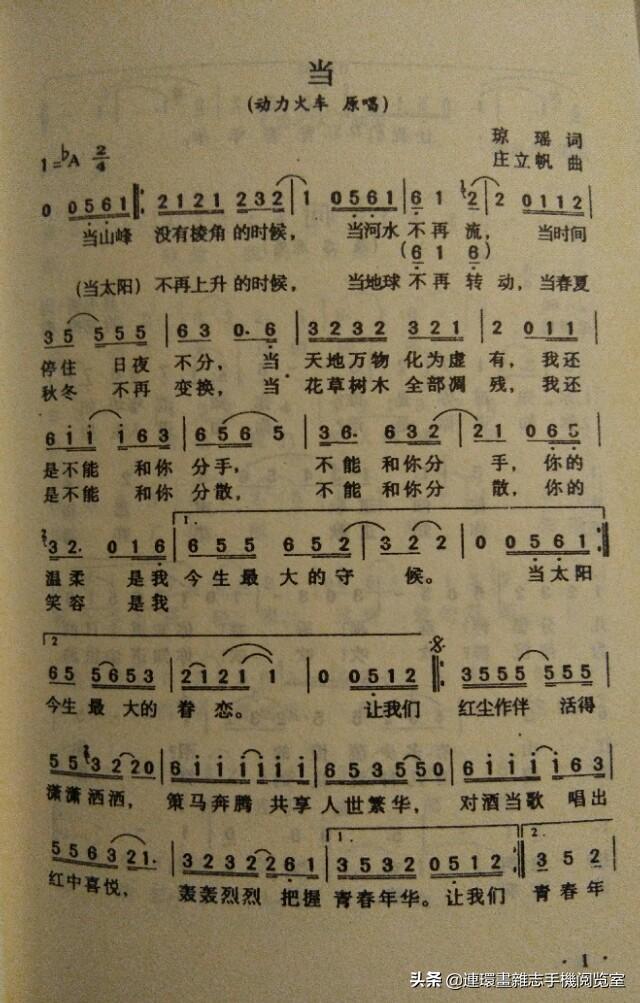 当
(动力火车 原唱)
琼 瑶 词
1=♭A 2/4
庄立帆 曲
0 0561 2121 232 1 0561 6 1 2 2 0112
当山峰 没有棱角 的时候, 当河水 不再 流, 当时间
(6 1 6)
(当太阳) 不再上升 的时候, 当地球 不再 转 动, 当春夏
35 555 63 0·6 3232 321 2 011
停住 日夜 不分, 当 天地万物 化为虚 有, 我还
秋冬 不再 变换, 当 花草树木 全部凋 残, 我还
6ii i63 656 5 36· 632 21 065
是不能 和你 分手, 不能 和你分 手, 你的
是不能 和你 分散, 不能 和你分 散, 你的
1.
32· 016 655 652 322 0 0561
温柔 是我 今生最 大的守 候。 当太阳
笑容 是我
2
65 5653 2121 1 0 0512 3555 555
今生 最 大的 眷 恋。 让我们 红尘作伴 活得
553220 6iiiiii 6535550 6iiiii63
潇潇洒洒, 策马奔腾 共享 人世繁华, 对酒当歌 唱出
1. 2.
556321· 3232 2261 3532 0512 3 5 2
红中喜悦, 轰轰烈烈 把握 青春年华。让我们 青春年
· 1 ·
头条 @連環畫雜志手機阅览室